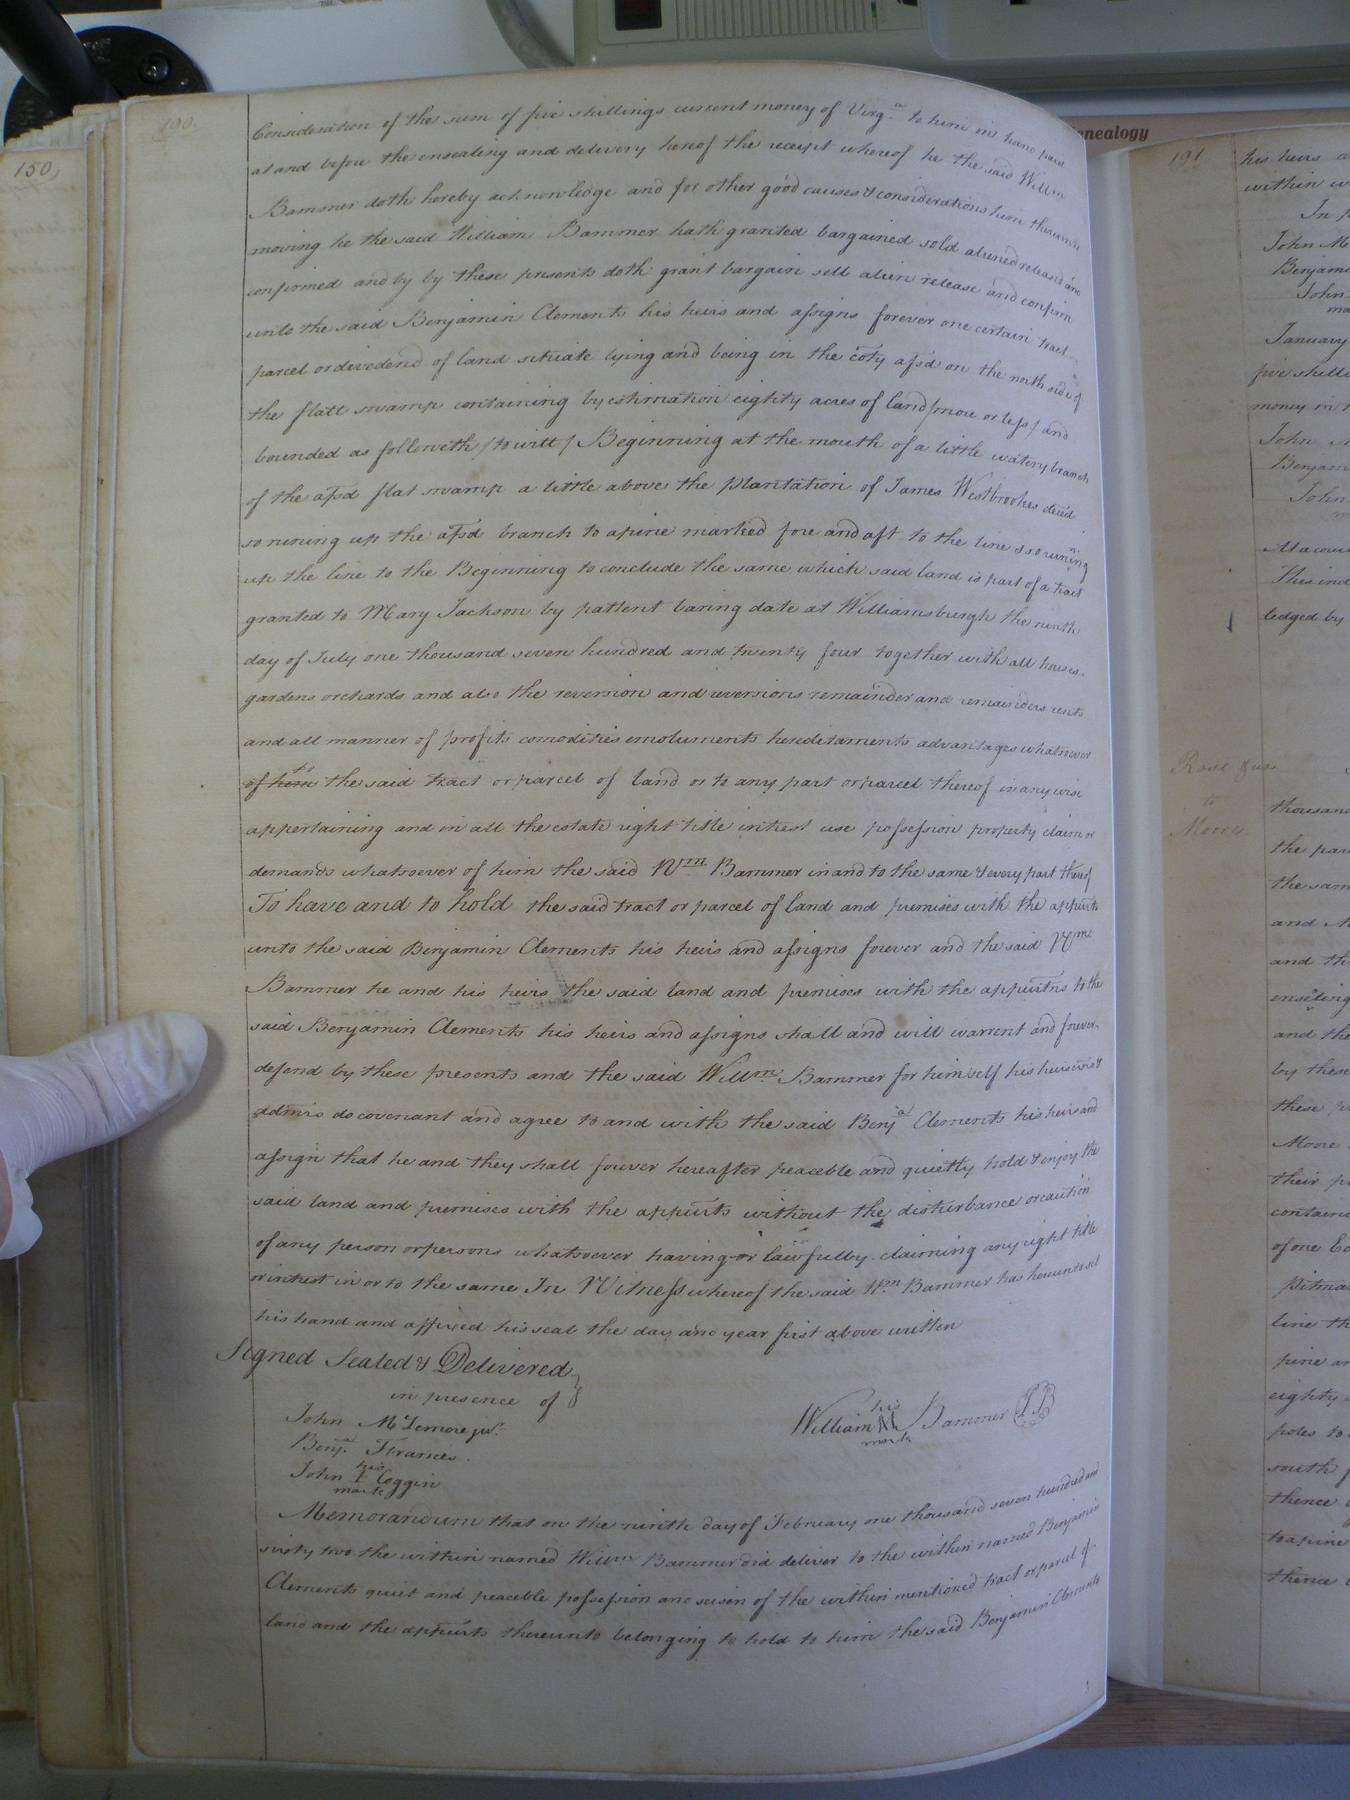 enealogy
150,
190.
Consideration of the sum of five shillings current money of Virga. to him in hand paid
at and before the ensealing and delivery hereof the receipt whereof he the said Willm
Bammer doth hereby acknowledge and for other good causes & considerations him thereunto
moving he the said William Bammer hath granted bargained sold aliened released and
confirmed and by by these presents doth grant bargain sell alien release and confirm
unto the said Benjamin Clements his heirs and assigns forever one certain tract
parcel or dividend of land situate lying and being in the coty afsd on the north side of
the flatt swamp containing by estimation eighty acres of land /more or less/ and
bounded as followeth /to witt/ Beginning at the mouth of a little watery branch
of the afsd flat swamp a little above the plantation of James Westbrookes deced
so runing up the afsd branch to a pine marked fore and aft to the line & so runing
up the line to the Beginning to conclude the same which said land is part of a tract
granted to Mary Jackson by pattent baring date at Williamsburgh the ninth
day of July one thousand seven hundred and twenty four together with all houses
gardens orchards and also the reversion and reversions remainder and remainders rents
and all manner of profits comodities emoluments hereditaments advantages whatsoever
of him to the said tract or parcel of land or to any part or parcel thereof in any wise
appertaining and in all the estate right title intrest use possession property claim or
demands whatsoever of him the said Wm Bammer in and to the same & every part thereof
To have and to hold the said tract or parcel of land and premises with the appurts
unto the said Benjamin Clements his heirs and assigns forever and the said Wm
Bammer he and his heirs the said land and premises with the appurtns to the
said Benjamin Clements his heirs and assigns shall and will warrent and forever
defend by these presents and the said Willm Bammer for himself his heirs &
admrs do covenant and agree to and with the said Benja Clements his heirs and
assign that he and they shall forever hereafter peaceble and quietly hold & enjoy the
said land and premises with the appurts without the disturbance or caution
of any person or persons whatsoever having or lawfully claiming any right title
or intrest in or to the same In Witness whereof the said Wm Bammer has hereunto set
his hand and affixed his seal the day and year first above written
Signed Sealed & Delivered
in presence of
John McLemore jur.
Benja. Ffrances.
his
John I Coggin
mark
his
William Bammer
mark
Memorandum that on the ninth day of February one thousand seven hundred and
sixty two the within named Willm Bammer did deliver to the within named Benjamin
Clements quiet and peaceble possession and seisen of the within mentioned tract or parcel of
land and the appurts thereunto belonging to hold to him the said Benjamin Clements
191
his heirs
within
John M
John
January
money in
John
John
This ind
ledged by
Rose
to
Moore
thousand
the
the same
and
and the
and the
by these
these
Moore
their
of one
line th
pine
eighty
poles to
south
thence
to a pine
thence